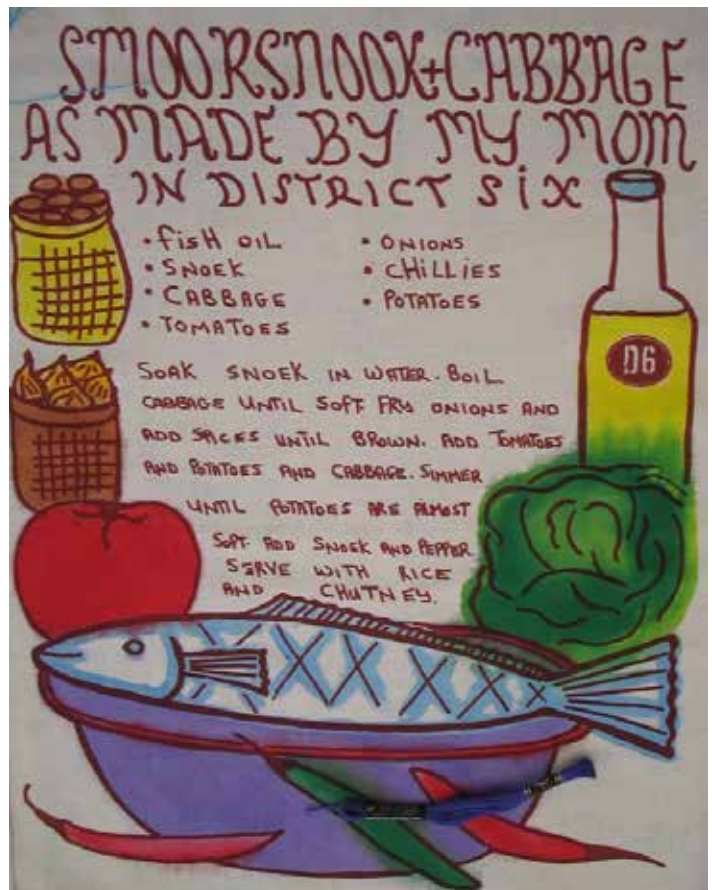 SMOORSNOOK+CABBAGE
AS MADE BY MY MOM
IN DISTRICT SIX
• FISH OIL
• SNOEK
• CABBAGE
• TOMATOES
• ONIONS
• CHILLIES
• POTATOES
D6
SOAK SNOEK IN WATER. BOIL
CABBAGE UNTIL SOFT. FRY ONIONS AND
ADD SPICES UNTIL BROWN. ADD TOMATOES
AND POTATOES AND CABBAGE. SIMMER
UNTIL POTATOES ARE ALMOST
SOFT. ADD SNOEK AND PEPPER.
SERVE WITH RICE
AND CHUTNEY.